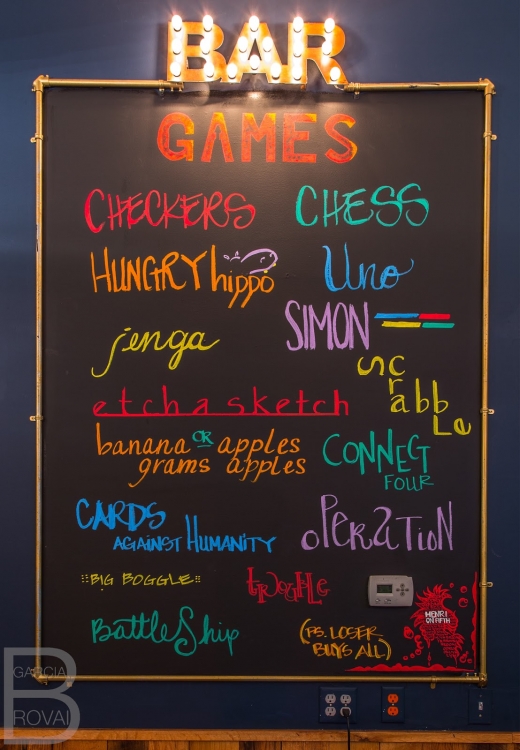 BAR
GAMES
CHECKERS
CHESS
HUNGRY hippo
Uno
jenga
SIMON
scrabble
etch a sketch
banana OR apples
grams apples
CONNECT
FOUR
CARDS
AGAINST HUMANITY
OPERATION
BIG BOGGLE
trouble
BattleShip
(P.S. LOSER
BUYS ALL)
HENRI
ON FIFTH
GARCIA
B
ROVAI